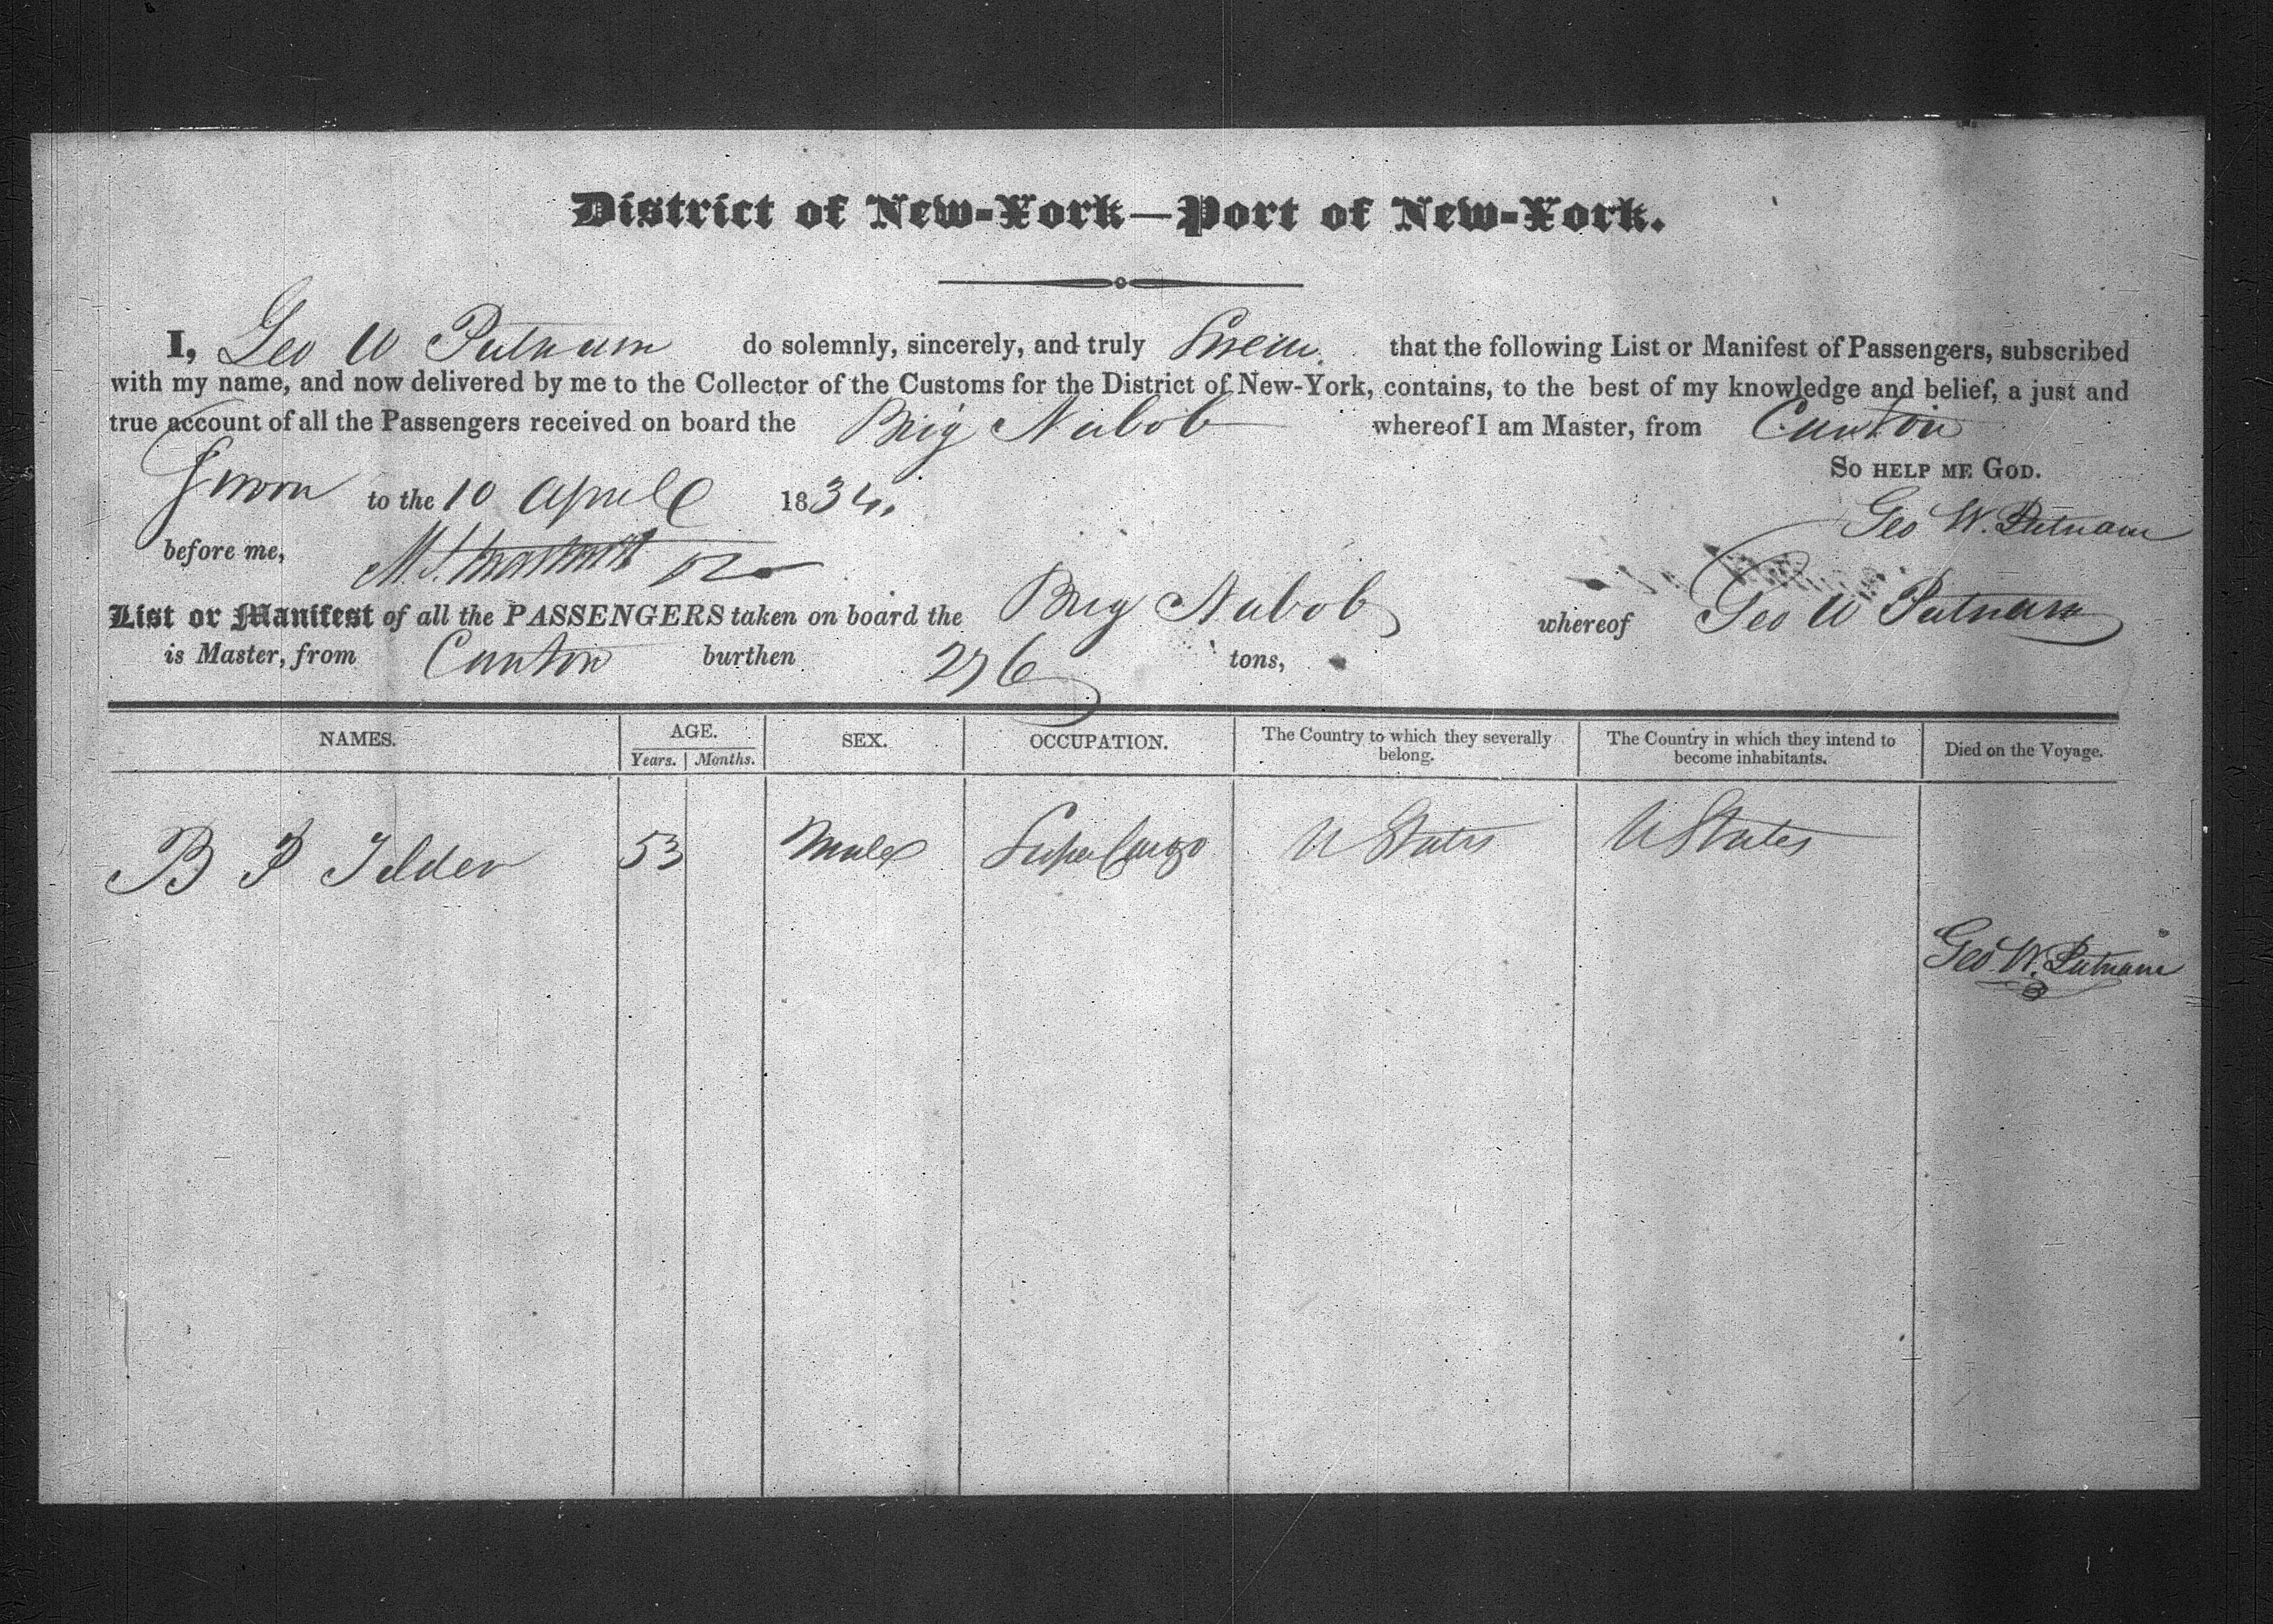 District of New-York—Port of New-York.
I, Geo W Putnam do solemnly, sincerely, and truly Swear that the following List or Manifest of Passengers, subscribed
with my name, and now delivered by me to the Collector of the Customs for the District of New-York, contains, to the best of my knowledge and belief, a just and
true account of all the Passengers received on board the Brig Nabob whereof I am Master, from Canton
So help me God.
Sworn to the 10 April 1834.
Geo W. Putnam
before me,
List or Manifest of all the PASSENGERS taken on board the Brig Nabob whereof Geo W Putnam
is Master, from Canton burthen 276 tons,
NAMES. AGE. SEX. OCCUPATION. The Country to which they severally belong. The Country in which they intend to become inhabitants. Died on the Voyage.
Years. Months.
B P Tilden 53 Male SuperCargo U States U States
Geo W. Putnam